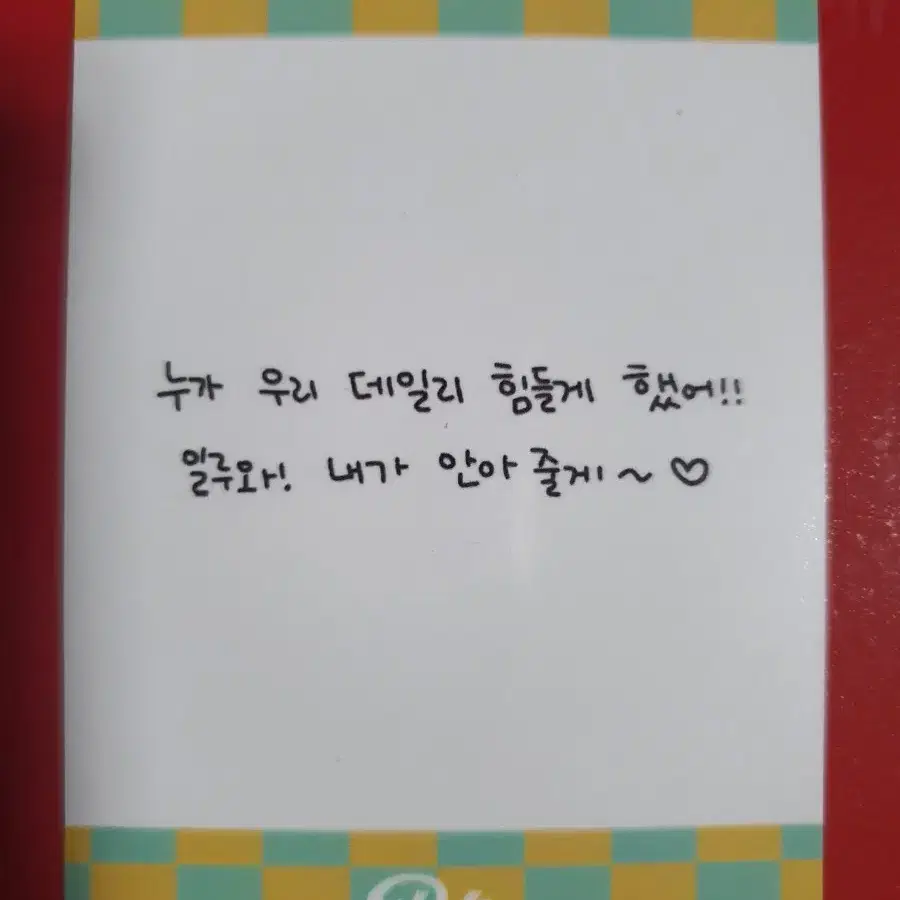 누가 우리 데일리 힘들게 했어!!
일루와! 내가 안아 줄게~ ♡